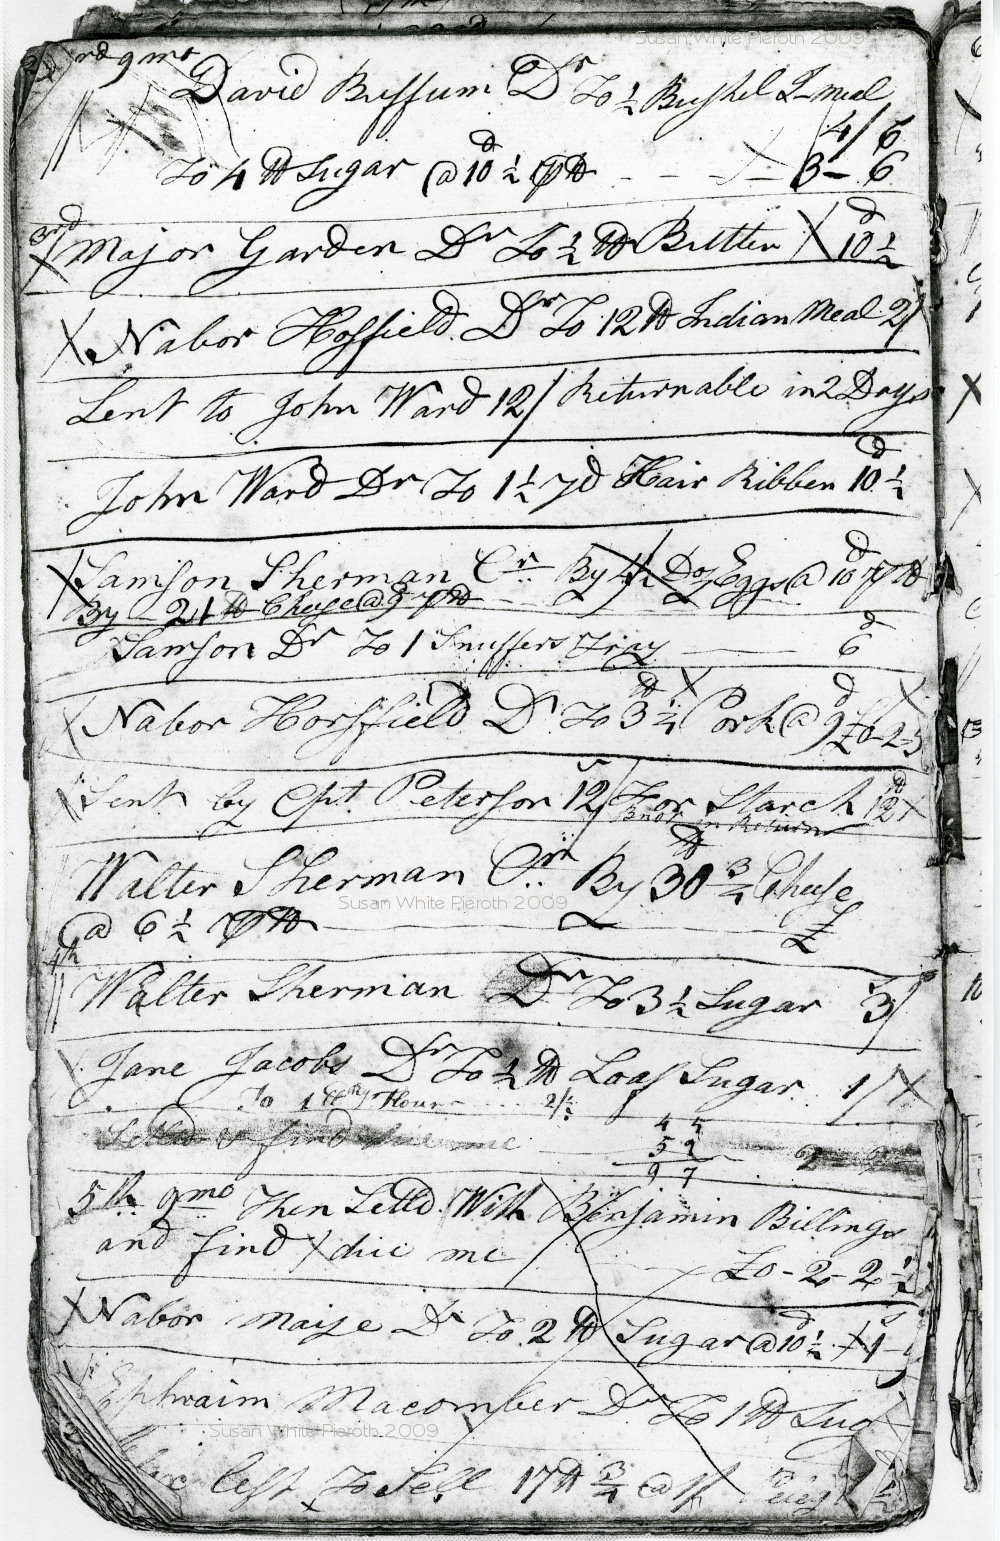 Susan White Pieroth 2009
3rd 9mo
David Buffum Dr To ½ Bushel I-meal
4/6
To 4 lb Sugar @ 10½d ℔ lb 3-6
3rd
Major Garden Dr To ½ lb Butter 10½d
Nabor Hosfield Dr To 12 lb Indian Meal 2/
Lent to John Ward 12/ Returnable in 2 Days
John Ward Dr To 1½ yd Hair Ribben 10½d
Samson Sherman Cr By 4½ Doz Eggs @ 10d
By 21 lb Chese @
Samson Dr To 1 Snuffers Tray 6d
Nabor Horsfield Dr To 3¼ lb Pork @ 9d £0-2-5
Sent by Cpt Peterson 12/ For Starch 12 lb
in Return
Walter Sherman Cr By 30¾ lb Chese
Susan White Pieroth 2009
@ 6½ £
4th
Walter Sherman Dr To 3½ Sugar 3/
Jane Jacobs Dr To ½ lb Loaf Sugar 1/
To 1 Flour 2/
Settld & find due me
4 5
5 2
9 7
5th 9mo Then Settld With Benjamin Billings
and find due me £0-2-2½
Nabor Maize Dr To 2 lb Sugar @ 10½d 1-9
Ephraim Macomber Dr To 1 lb Sug
Susan White Pieroth 2009
left To Sell 17 lb ¾ @ 1/